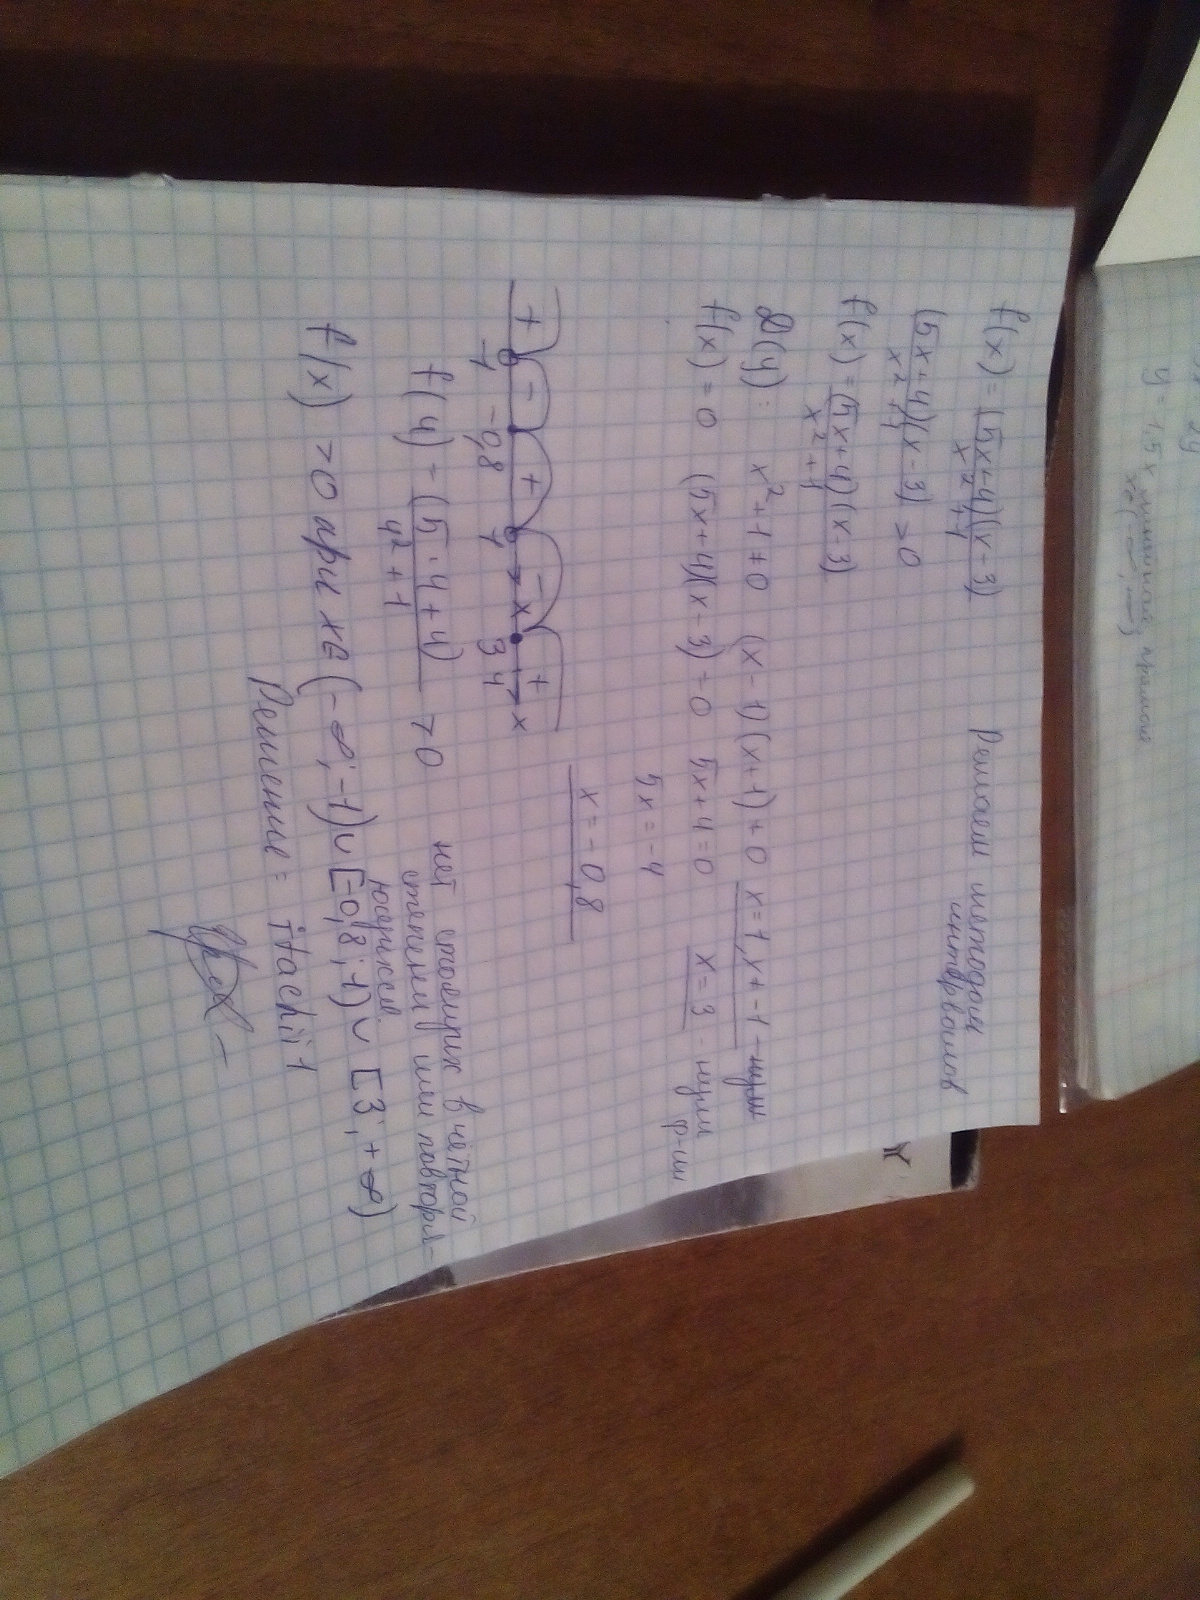 f(x) = (5x+4)(x-3) / x²+1
Решаем методом интервалов
(5x+4)(x-3) / x²+1 > 0
f(x) = (5x+4)(x-3) / x²+1
D(y): x²+1≠0 (x-1)(x+1)≠0 x=1, x≠-1 - нули
f(x) = 0 (5x+4)(x-3)=0 5x+4=0 x=3 - нули ф-ии
5x=-4
x=-0,8
+ - + - +
-1 -0,8 1 x 3 4 x
f(4) = (5·4+4) / 4²+1 >0
нет стоящих в чётной
степени или повторя-
ющихся.
f(x) >0 при x∈(-∞;-1)∪[-0,8;1)∪[3;+∞)
Решение: iHachii1
y = 1,5x